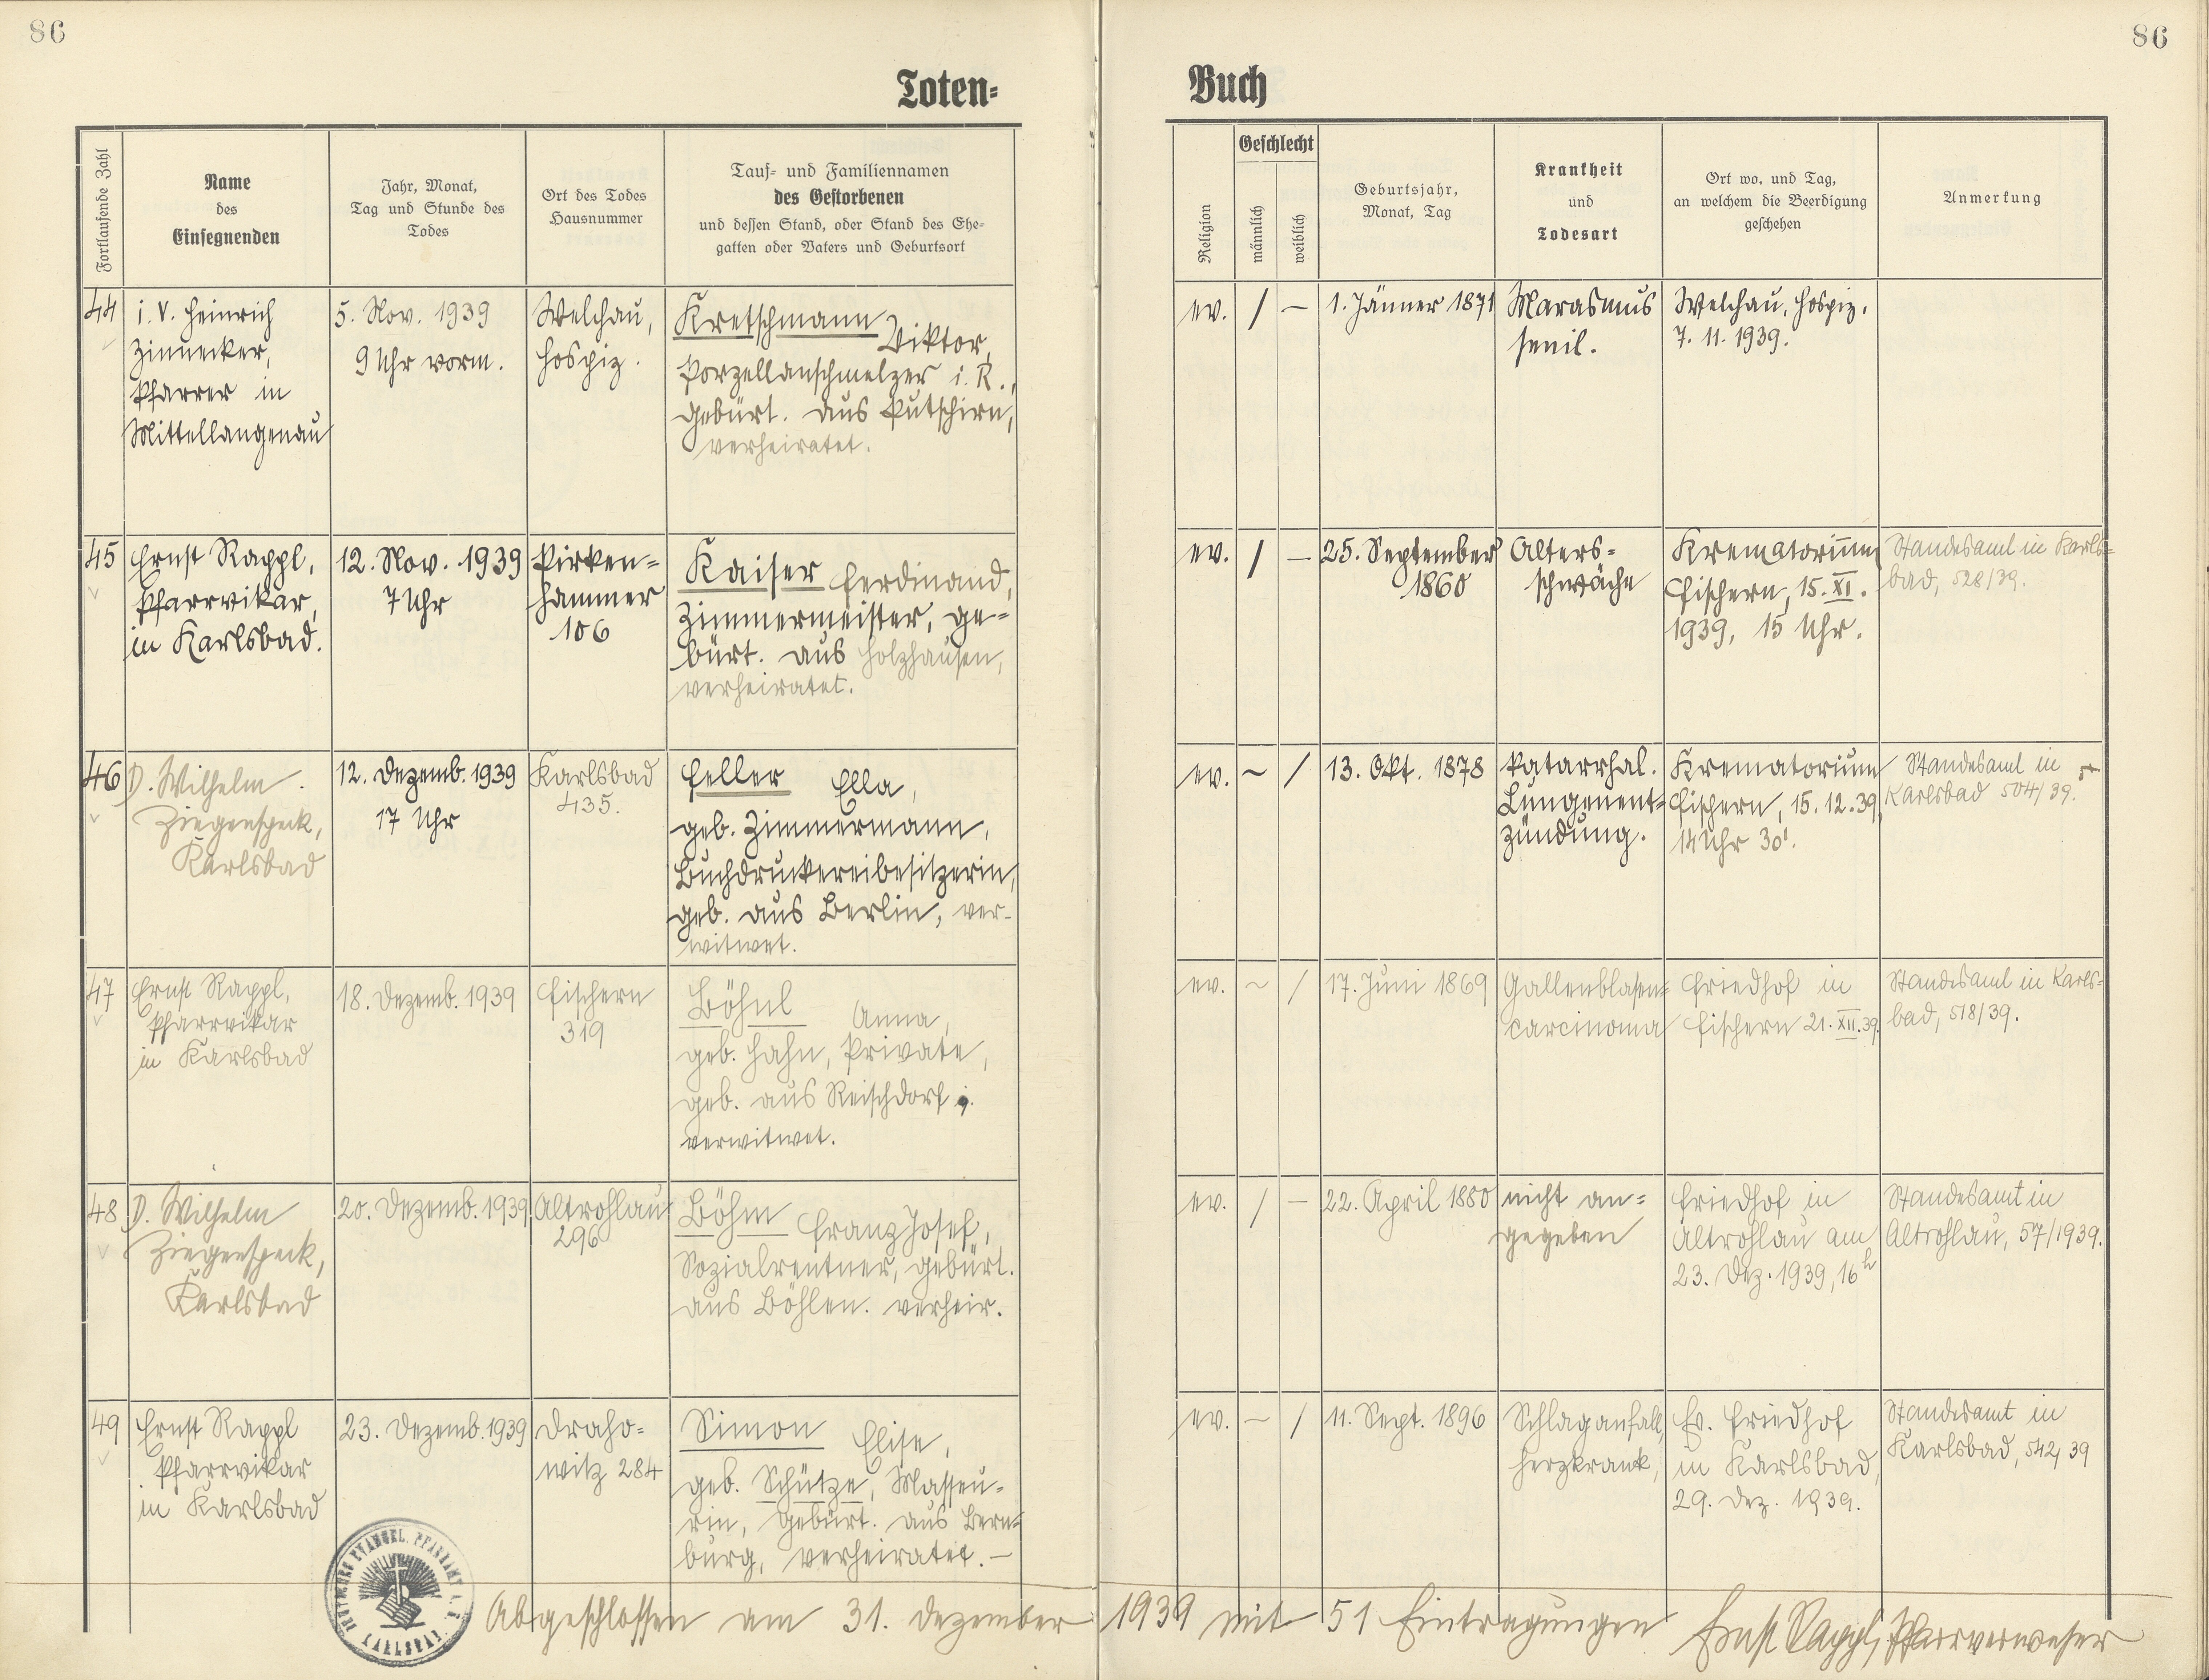 86
86
Toten=
Buch
Fortlaufende Zahl
Name
des
Einsegnenden
Jahr, Monat,
Tag und Stunde des
Todes
Ort des Todes
Hausnummer
Tauf- und Familiennamen
des Gestorbenen
und dessen Stand, oder Stand des Ehe-
gatten oder Vaters und Geburtsort
Religion
Geschlecht
männlich
weiblich
Geburtsjahr,
Monat, Tag
Krankheit
und
Todesart
Ort wo, und Tag,
an welchem die Beerdigung
geschehen
Anmerkung
44
i. V. Heinrich
Zinnecker,
Pfarrer in
Mittellangenau
5. Nov. 1939
9 Uhr vorm.
Welchau,
Hospiz.
Kretschmann
Viktor,
Porzellanschmelzer i. R.,
gebürt. aus Putschirn,
verheiratet.
ev. / –
1. Jänner 1871
Marasmus
senil.
Welchau, Hospiz.
7. 11. 1939.
45
Ernst Rappl,
Pfarrvikar,
in Karlsbad.
12. Nov. 1939
7 Uhr
Pirken=
hammer
106
Kaiser Ferdinand,
Zimmermeister, ge=
bürt. aus Holzhausen,
verheiratet.
ev. / –
25. September
1860
Alters=
schwäche
Krematorium
Fischern, 15. XI.
1939, 15 Uhr.
Standesamt in Karls=
bad, 528/39.
46
D. Wilhelm
Ziegenspeck,
Karlsbad
12. Dezemb. 1939
17 Uhr
Karlsbad
435.
Feller Ella,
geb. Zimmermann,
Buchdruckereibesitzerin,
geb. aus Berlin, ver-
witwet.
ev. ~ /
13. Okt. 1878
Katarrhal.
Lungenent=
zündung.
Krematorium
Fischern, 15. 12. 39,
14 Uhr 30'.
Standesamt in
Karlsbad 504/39.
47
Ernst Rappl,
Pfarrvikar
in Karlsbad
18. Dezemb. 1939
Fischern
319
Böhnl Anna,
geb. Hahn, Private,
geb. aus Reischdorf,
verwitwet.
ev. ~ /
17. Juni 1869
Gallenblasen=
carcinoma
Friedhof in
Fischern 21. XII. 39.
Standesamt in Karls=
bad, 518/39.
48
D. Wilhelm
Ziegenspeck,
Karlsbad
20. Dezemb. 1939
Altrohlau
296
Böhm Franz Josef,
Sozialrentner, gebürt.
aus Böhlen. verheir.
ev. / –
22. April 1880
nicht an=
gegeben
Friedhof in
Altrohlau am
23. Dez. 1939, 16h
Standesamt in
Altrohlau, 57/1939.
49
Ernst Rappl
Pfarrvikar
in Karlsbad
23. Dezemb. 1939
Draho=
witz 284
Simon Elise,
geb. Schütze, Masseu=
rin, gebürt. aus Bern=
burg, verheiratet. –
ev. ~ /
11. Sept. 1896
Schlaganfall,
herzkrank,
Ev. Friedhof
in Karlsbad,
29. Dez. 1939.
Standesamt in
Karlsbad, 542, 39
EVANGEL. PFARRAMT
KARLSBAD
Abgeschlossen am 31. Dezember 1939 mit 51 Eintragungen Ernst Rappl, Pfarrverweser